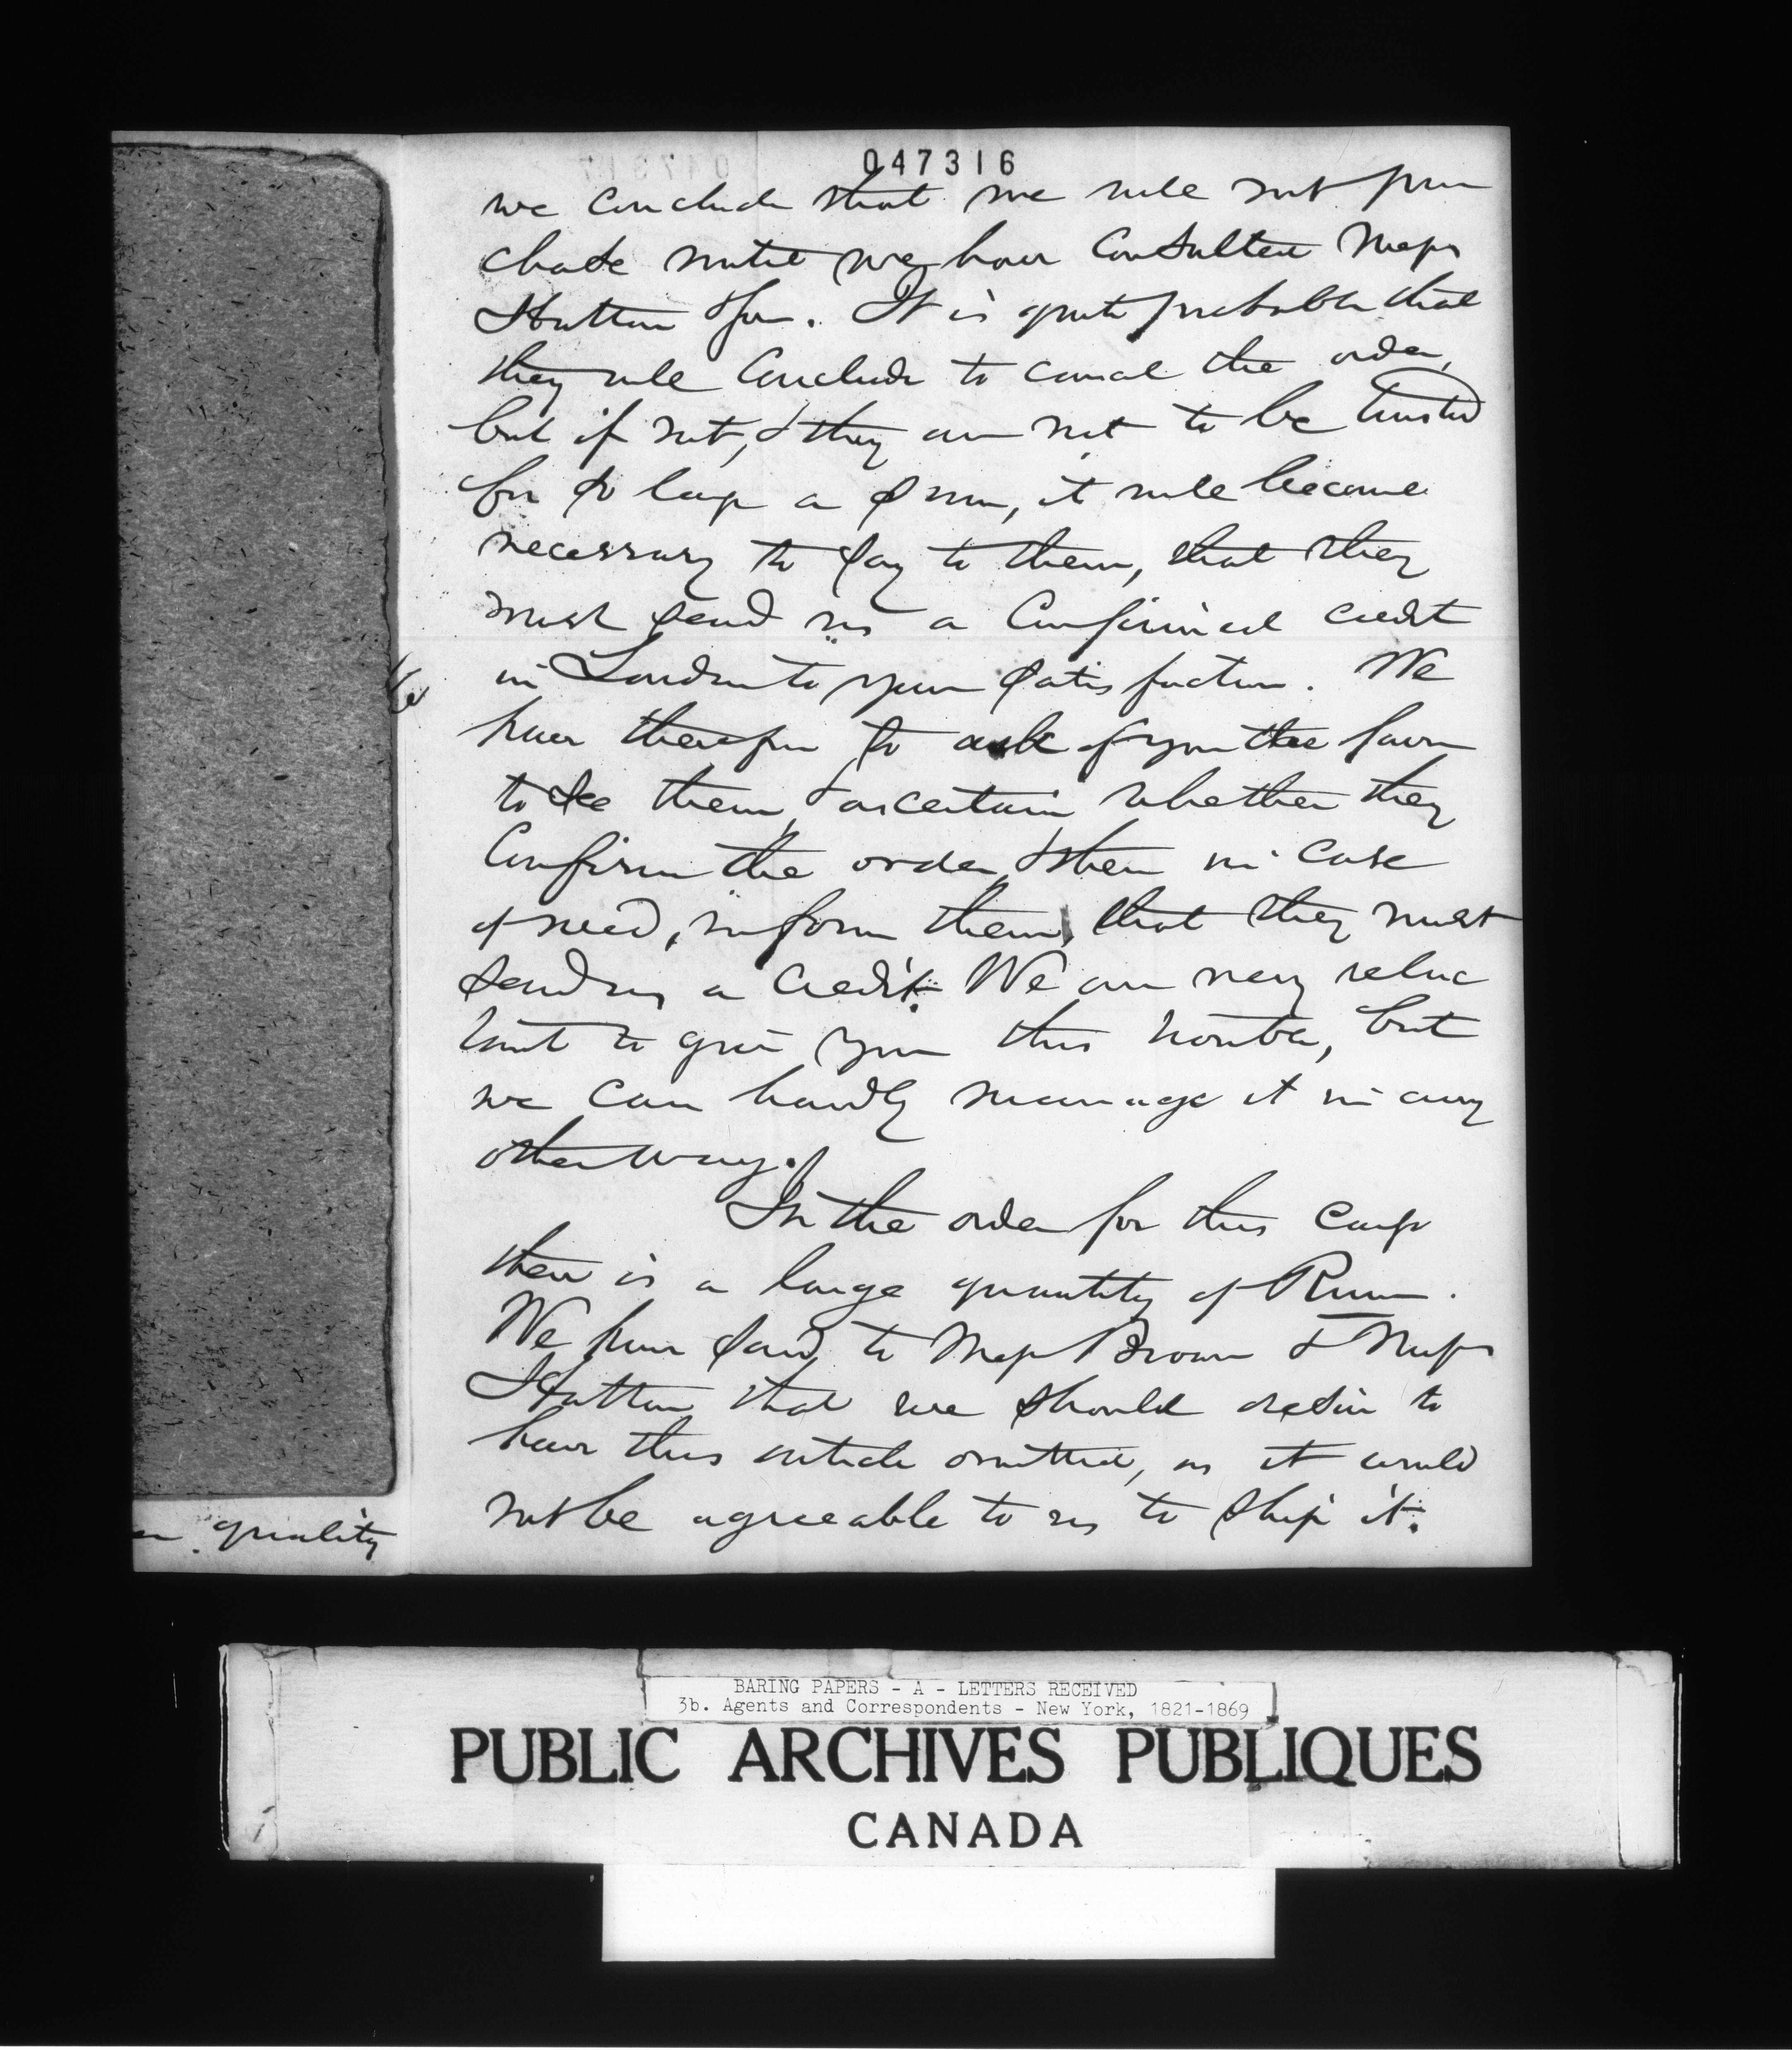 047316
we conclude that we will not pur
chase until we have consulted Messrs
Hutton & you. It is quite probable that
they will conclude to cancel the order,
but if not, & they are not to be trusted
for so large a sum, it will become
necessary to say to them, that they
must send us a Confirmed credit
in London to your satisfaction. We
have therefore to ask of you the favor
to see them, & ascertain whether they
Confirm the order, & then in case
of need, inform them, that they must
send us a credit. We are very reluc
tant to give you this trouble, but
we can hardly manage it in any
other way.
In the order for this cargo
there is a large quantity of Rum.
We have said to Messrs Brown & Messrs
Hutton that we should desire to
have this article omitted, as it would
not be agreeable to us to ship it.
quality
BARING PAPERS - A - LETTERS RECEIVED
3b. Agents and Correspondents - New York, 1821-1869
PUBLIC ARCHIVES PUBLIQUES
CANADA